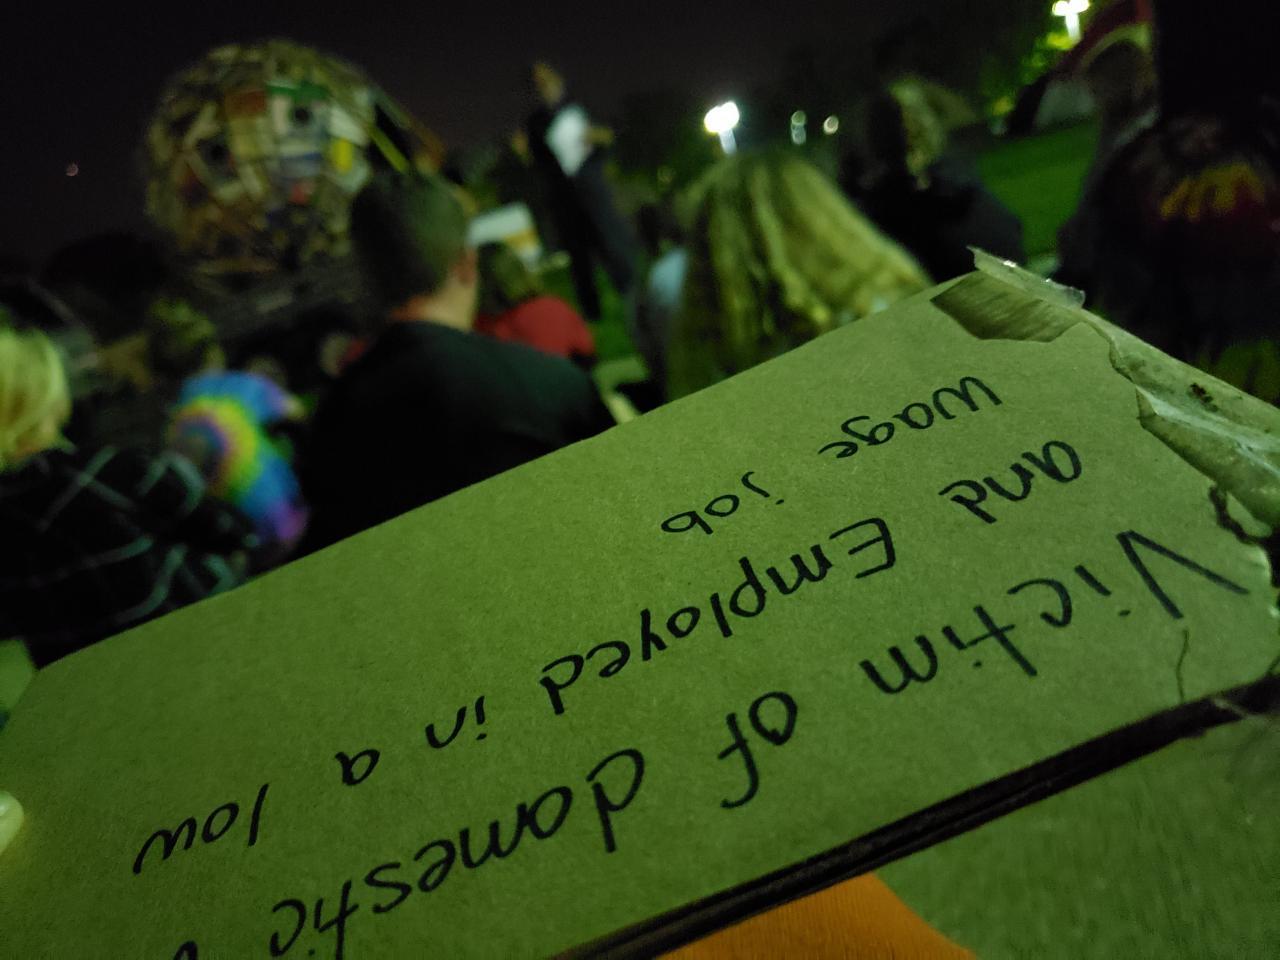 Victim of domestic
and Employed in a low
wage job